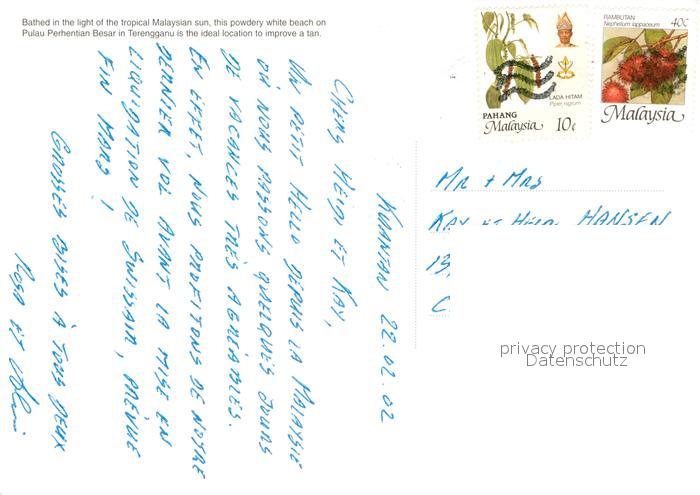 Bathed in the light of the tropical Malaysian sun, this powdery white beach on
Pulau Perhentian Besar in Terengganu is the ideal location to improve a tan.
LADA HITAM
Piper nigrum
PAHANG
Malaysia 10¢
RAMBUTAN
Nephelium lappaceum 40¢
Malaysia
KUANTAN 22.02.02
CHERS HEIDI ET KAY,
UN PETIT HELLO DEPUIS LA MALAYSIE
OÙ NOUS PASSONS QUELQUES JOURS
DE VACANCES TRÈS AGRÉABLES.
EN EFFET, NOUS PROFITONS DE NOTRE
DERNIER VOL AVANT LA MISE EN
LIQUIDATION DE SWISSAIR, PRÉVUE
FIN MARS !
GROSSES BISES À TOUS DEUX
ROSA ET
MR + MRS
KAY ET HEIDI HANSEN
13
C
privacy protection
Datenschutz